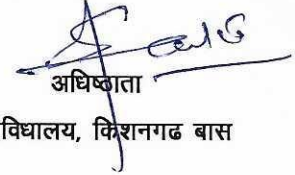 अधिष्ठाता
विधालय, किशनगढ बास